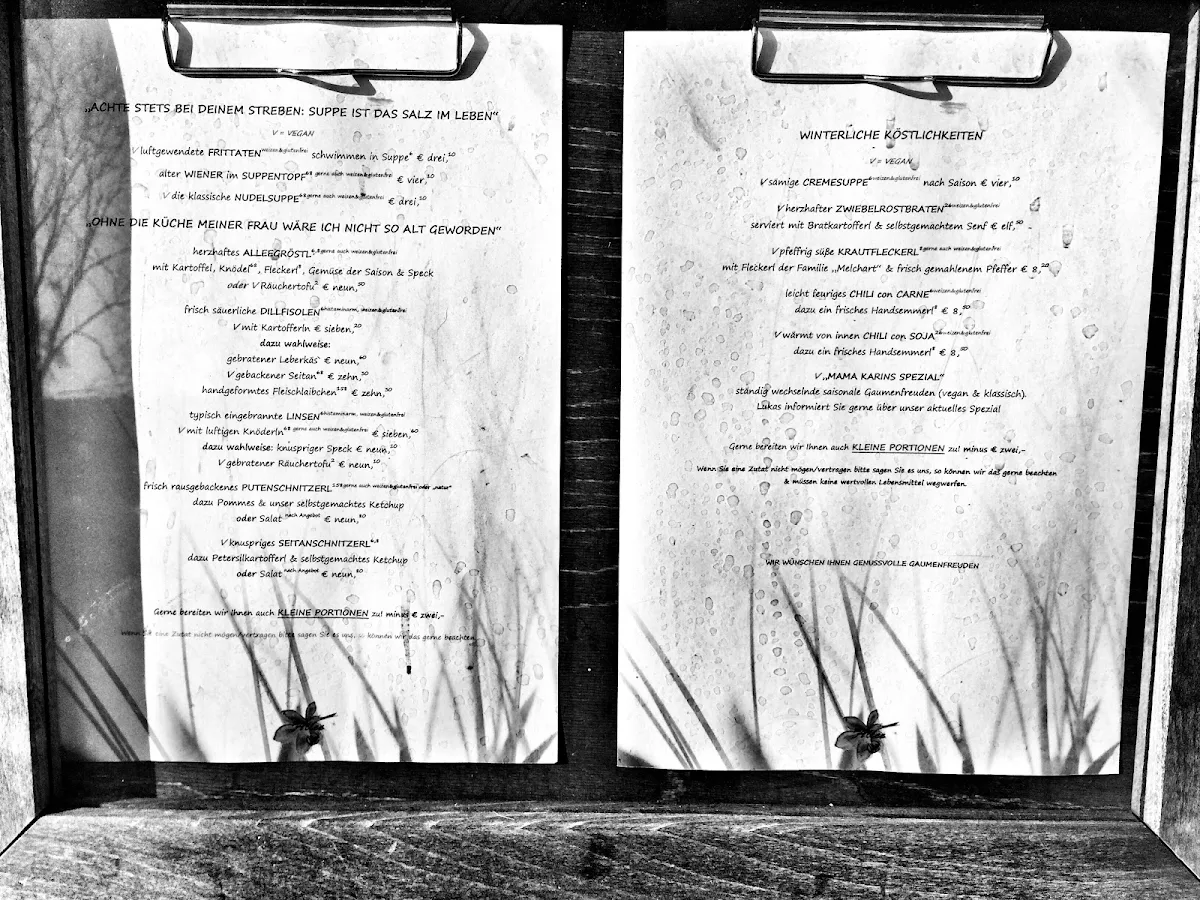 „ACHTE STETS BEI DEINEM STREBEN: SUPPE IST DAS SALZ IM LEBEN“
V = VEGAN
V luftgewendete FRITTATEN weizen&glutenfrei schwimmen in Suppe⁶ € drei,10
alter WIENER im SUPPENTOPF gerne auch weizen&glutenfrei € vier,10
V die klassische NUDELSUPPE gerne auch weizen&glutenfrei € drei,10
„OHNE DIE KÜCHE MEINER FRAU WÄRE ICH NICHT SO ALT GEWORDEN“
herzhaftes ALLEEGRÖSTL gerne auch weizen&glutenfrei
mit Kartoffel, Knödel, Fleckerl, Gemüse der Saison & Speck
oder V Räuchertofu € neun,50
frisch säuerliche DILLFISOLEN histaminarm, weizen&glutenfrei
V mit Kartofferln € sieben,20
dazu wahlweise:
gebratener Leberkäs` € neun,60
V gebackener Seitan € zehn,50
handgeformtes Fleischlaibchen € zehn,50
typisch eingebrannte LINSEN histaminarm, weizen&glutenfrei
V mit luftigen Knöderln gerne auch weizen&glutenfrei € sieben,60
dazu wahlweise: knuspriger Speck € neun,10
V gebratener Räuchertofu € neun,10
frisch rausgebackenes PUTENSCHNITZERL gerne auch weizen&glutenfrei oder „natur“
dazu Pommes & unser selbstgemachtes Ketchup
oder Salat nach Angebot € neun,80
V knuspriges SEITANSCHNITZERL
dazu Petersilkartofferl & selbstgemachtes Ketchup
oder Salat nach Angebot € neun,80
Gerne bereiten wir Ihnen auch KLEINE PORTIONEN zu! minus € zwei,-
Wenn Sie eine Zutat nicht mögen/vertragen bitte sagen Sie es uns, so können wir das gerne beachten
WINTERLICHE KÖSTLICHKEITEN
V = VEGAN
V sämige CREMESUPPE weizen&glutenfrei nach Saison € vier,10
V herzhafter ZWIEBELROSTBRATEN weizen&glutenfrei
serviert mit Bratkartofferl & selbstgemachtem Senf € elf,50
V pfeffrig süße KRAUTFLECKERL gerne auch weizen&glutenfrei
mit Fleckerl der Familie „Melchart“ & frisch gemahlenem Pfeffer € 8,20
leicht feuriges CHILI con CARNE weizen&glutenfrei
dazu ein frisches Handsemmerl € 8,50
V wärmt von innen CHILI con SOJA weizen&glutenfrei
dazu ein frisches Handsemmerl € 8,50
V „MAMA KARINS SPEZIAL“
ständig wechselnde saisonale Gaumenfreuden (vegan & klassisch).
Lukas informiert Sie gerne über unser aktuelles Spezial
Gerne bereiten wir Ihnen auch KLEINE PORTIONEN zu! minus € zwei,-
Wenn Sie eine Zutat nicht mögen/vertragen bitte sagen Sie es uns, so können wir das gerne beachten
& müssen keine wertvollen Lebensmittel wegwerfen.
WIR WÜNSCHEN IHNEN GENUSSVOLLE GAUMENFREUDEN